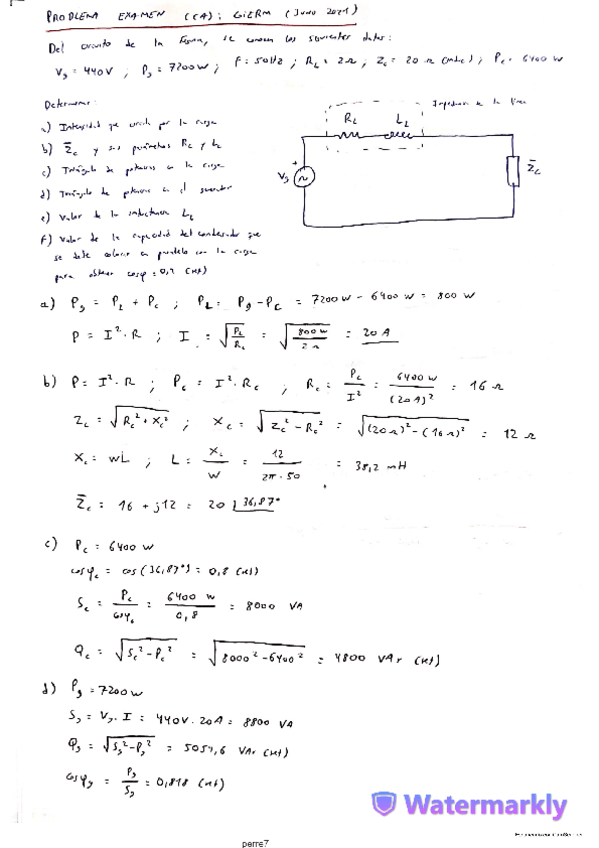 PROBLEMA EXAMEN (CA): GIERM (JUNIO 2021)
Del circuito de la figura, se conocen los siguientes datos:
Vg = 440V ; Pg = 7200 W ; f = 50Hz ; RL = 2Ω ; Zc = 20 Ω (indc) ; Pc = 6400 W
Determinar:
a) Intensidad que circula por la carga
b) Z̄c y sus parámetros Rc y Lc
c) Triángulo de potencias en la carga
d) Triángulo de potencias en el generador
e) Valor de la inductancia LL
f) Valor de la capacidad del condensador que
se debe colocar en paralelo con la carga
para obtener cosφ = 0,9 (ind)
Impedancia de la línea
RL LL
Vg
+
~
Z̄c
a) Pg = PL + Pc ; PL = Pg - Pc = 7200W - 6400W = 800 W
P = I²·R ; I = √(PL/RL) = √(800 W/2 Ω) = 20 A
b) P = I²·R ; Pc = I²·Rc ; Rc = Pc/I² = 6400 W/(20 A)² = 16 Ω
Zc = √(Rc² + Xc²) ; Xc = √(Zc² - Rc²) = √((20Ω)² - (16Ω)²) = 12 Ω
Xc = WL ; L = Xc/W = 12/(2π·50) = 38,2 mH
Z̄c = 16 + j12 = 20 |36,87°
c) Pc = 6400 W
cosφc = cos(36,87°) = 0,8 (ind)
Sc = Pc/cosφc = 6400 W/0,8 = 8000 VA
Qc = √(Sc² - Pc²) = √(8000² - 6400²) = 4800 VAr (ind)
d) Pg = 7200 W
Sg = Vg·I = 440V·20A = 8800 VA
Qg = √(Sg² - Pg²) = 5059,6 VAr (ind)
cosφg = Pg/Sg = 0,818 (ind)
Watermarkly
perre7